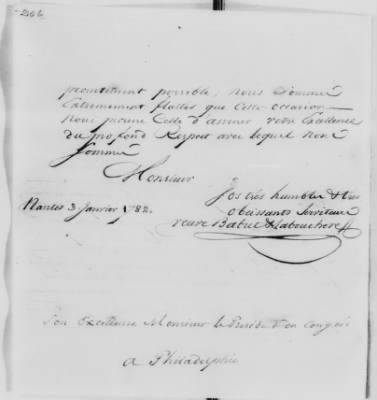 206
promptement possible, nous sommes
Extremement flattés que Cette occasion
Nous procure Celle d'assurer votre Excellence
du profond Respect avec lequel nous
sommes
Monsieur
Vos très humbles & très
Nantes 3 Janvier 1782.
obeissants Serviteurs
veuve Babut & Labouchere
Son Excellence Monsieur le President en Congrès
a Philadelphie